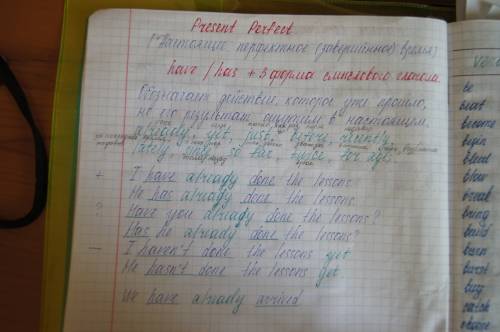 Present Perfect
(Настоящее перфектное (завершённое) время)
have / has + 3 форма смыслового глагола
Обозначает действие, которое уже прошло,
но его результат ощутим в настоящем.
already, yet, just, before, recently,
lately, since, so far, twice, for ages
+ I have already done the lessons
He has already done the lessons
? Have you already done the lessons?
Has he already done the lessons?
– I haven't done the lessons yet
He hasn't done the lessons yet
We have already arrived
be
beat
become
begin
bleed
blow
break
bring
build
burn
burst
buy
catch
choose